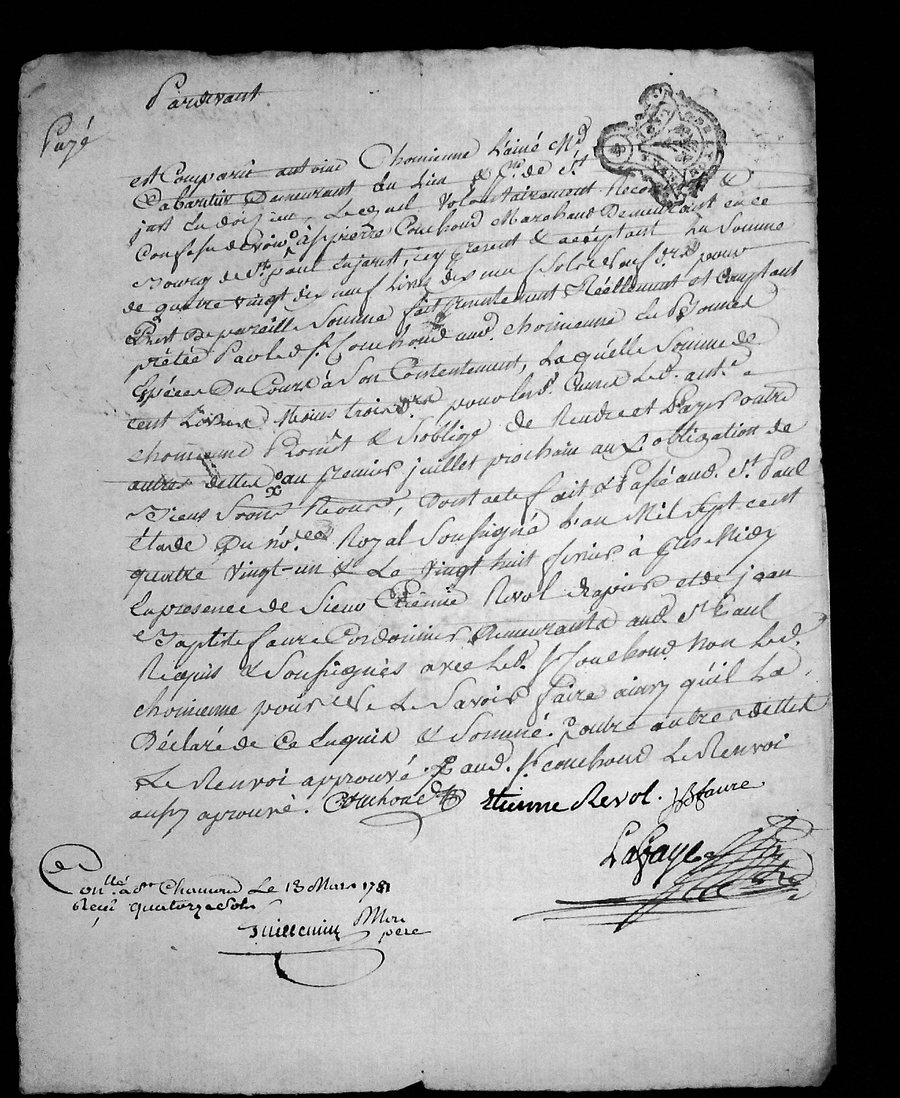 Pardevant
Payé
est Comparu antoine Chomienne L'ainé Md
Cabaretier Demeurant du Lieu & de St
just Lequel Volontairement
Confesse devoir à Sr pierre Couchoud Marchand Demeurant en ce
Bourg de St paul Enjarest, icy present & acceptant La Somme
de quatre vingt dix neuf Livres dix neuf Sols pour
Prest De pareille Somme fait presentement Réellement et Comptant
prétée Par led. Sr. Couchoud aud. chomienne En Bonnes
Espéces Du Cours à Son Contentement, Laquelle Somme de
Cent Livres Moins trois drs Led. ante.
Chomienne Promet & S'oblige de Rendre et Payer outre
autres dettes au premier juillet prochain aux obligation de
Biens Dont acte fait & Passé aud. St. Paul
étude Du nore. Royal Soussigné L'an Mil Sept Cent
quatre Vingt-un & Le Vingt huit fevrier à pres Midy
En presence de Sieur Etienne Revol drapier et de jean
Baptiste faure Cordonnier Demeurants aud. St. Paul
Requis & Soussignés avec Led. Sr Couchoud Non Led.
chomienne pour ne Le Savoir faire ainsy qu'il La
Déclaré de Ce Enquis & Sommé. outre autres dettes
Le Renvoi approuvé. aud. Sr. couchoud Le Renvoi
aussy aprouvé. Couchoud Etienne Revol. JBfaure
Lafaye
Conllé à St Chamond Le 13 Mars 1781
Reçu quatorze Sols
Guillemin
pere